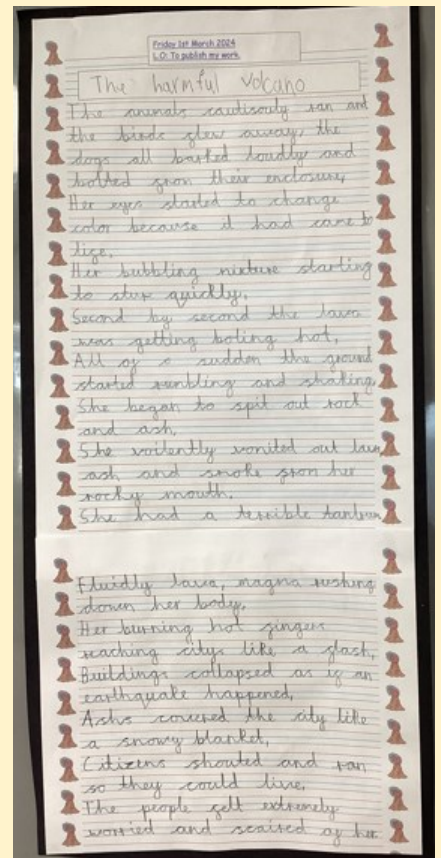 Friday 1st March 2024
L.O: To publish my work.
The harmful volcano
The animals cautisouly ran and
the birds flew away, the
dogs all barked loudly and
bolted from their enclosure,
Her eyes started to change
color because it had came to
life,
Her bubbling mixture starting
to stur quickly,
Second by second the lava
was getting boiling hot,
All of a sudden the ground
started rumbling and shaking,
She began to spit out rock
and ash,
She voilently vomited out lava,
ash and smoke from her
rocky mouth,
She had a terrible tantrum,
Fluidly lava, magma rushing
down her body,
Her burning hot fingers
reaching citys like a flash,
Buildings collapsed as if an
earthquake happened,
Ashs covered the city like
a snowy blanket,
Citizens shouted and ran
so they could live,
The people felt extremely
worried and scaired of her